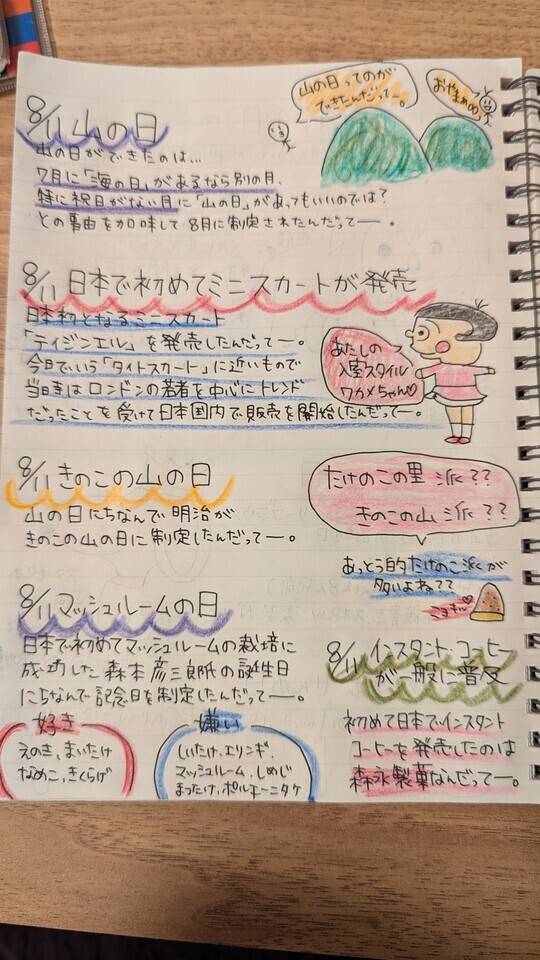 山の日ってのが
できたんだってー。
おやまぁのぅ
8/11 山の日
山の日ができたのは…
7月に「海の日」があるなら別の月、
特に祝日がない月に「山の日」があってもいいのでは?
との事由を加味して8月に制定されたんだってー。
8/11 日本で初めてミニスカートが発売
日本初となるミニスカート
「テイジンエル」を発売したんだってー。
今日でいう「タイトスカート」に近いもので
当時はロンドンの若者を中心にトレンド
だったことを受けて日本国内で販売を開始したんだってー。
あたしの
入室スタイル
ワカメちゃん♡
8/11 きのこの山の日
山の日にちなんで明治が
きのこの山の日に制定したんだってー。
たけのこの里 派??
きのこの山 派??
あっとう的たけのこ派が
多いよね??
8/11 マッシュルームの日
日本で初めてマッシュルームの栽培に
成功した森本彦三郎氏の誕生日
にちなんで記念日を制定したんだってー。
好き
えのき、まいたけ
なめこ、きくらげ
嫌い
しいたけ、エリンギ、
マッシュルーム、しめじ
まつたけ、ポルチーニタケ
8/11 インスタント・コーヒー
が一般に普及
初めて日本でインスタント
コーヒーを発売したのは
森永製菓なんだってー。